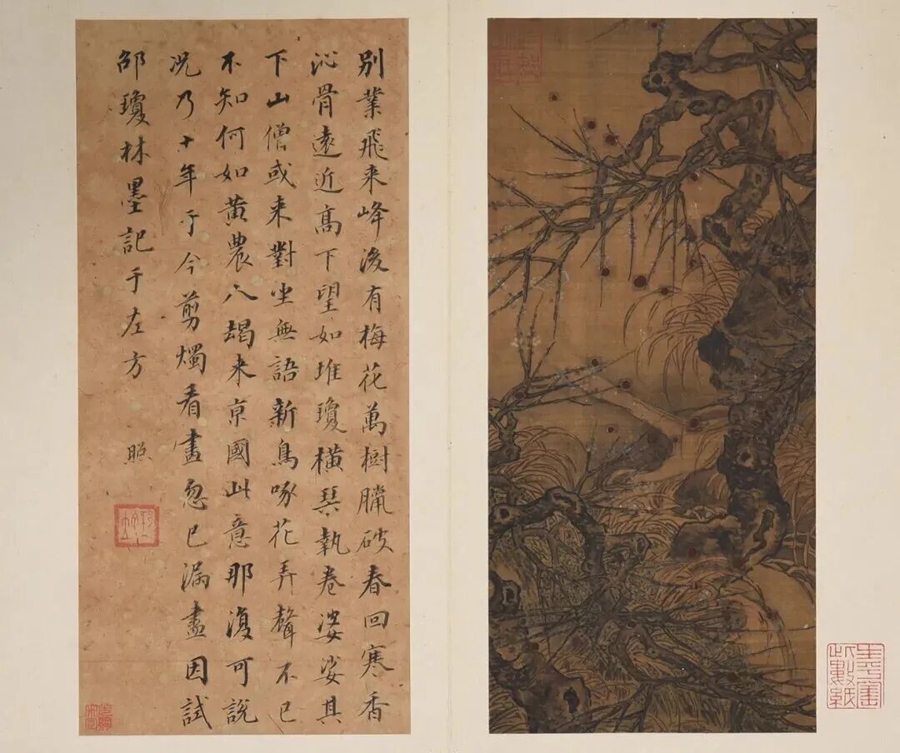 別業飛来峰後有梅花萬樹臘破春回寒香
沁骨遠近高下望如堆瓊橫琴執卷婆娑其
下山僧或来對坐無語新鳥啄花弄聲不已
不知何如黃農人朅来京國此意那復可說
况乃十年于今剪燭看畫忽已漏盡因試
邵瓊林墨記于左方 照